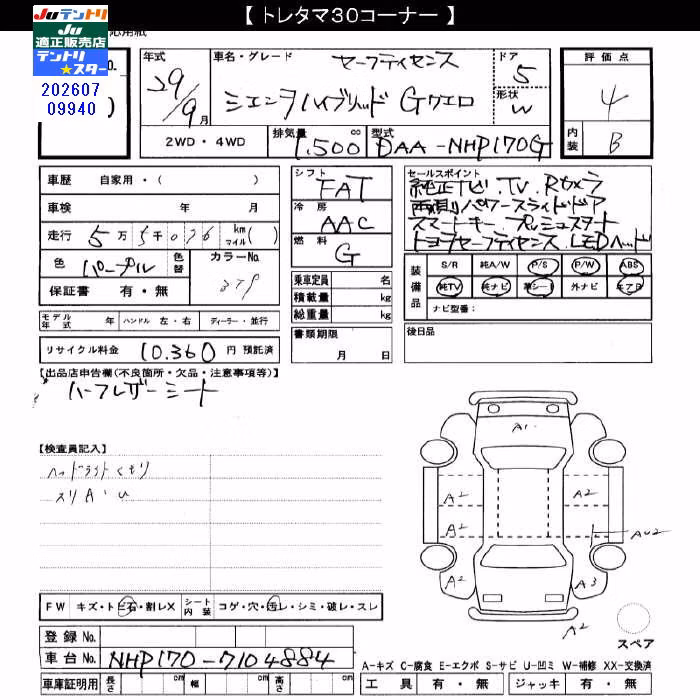 【トレタマ30コーナー】
Juテントリ
Ju
適正販売店
テントリ
★スター
202607
09940
応用紙
年式 29/9月
車名・グレード セーフティセンス
シエンタハイブリッド Gクエロ
ドア 5
形状 W
評価点 4
内装 B
2WD・4WD
排気量 1,500 cc
型式 DAA-NHP170G
車歴 自家用・( )
車検 年 月
走行 5万5千076 km マイル( )
色 パープル 色替 カラーNo. 379
保証書 有・無
シフト FAT
冷房 AAC
燃料 G
乗車定員 名
積載量 kg
総重量 kg
セールスポイント
純正ナビ.TV.Rカメラ
両側パワースライドドア
スマートキー プッシュスタート
トヨタセーフティセンス LEDヘッド
装備品 S/R 純A/W P/S P/W ABS
純TV 純ナビ 革シート 外ナビ エアB
ナビ型番:
モデル年式 年 ハンドル 左・右 ディーラー・並行
書類期限 月 日
後日品
リサイクル料金 10,360 円 預託済
【出品店申告欄(不良箇所・欠品・注意事項等)】
ハーフレザーシート
【検査員記入】
ヘッドライトくもり
スリA・U
A1
A2 A2
A2 AU2
A2 A3
A2
スペア
FW キズ・トビ石・割レX シート内装 コゲ・穴・汚レ・シミ・破レ・スレ
登録No.
車台No. NHP170-7104884
A-キズ C-腐食 E-エクボ S-サビ U-凹ミ W-補修 XX-交換済
車庫証明用 長さ cm 幅 cm 高さ cm
工具 有・無 ジャッキ 有・無